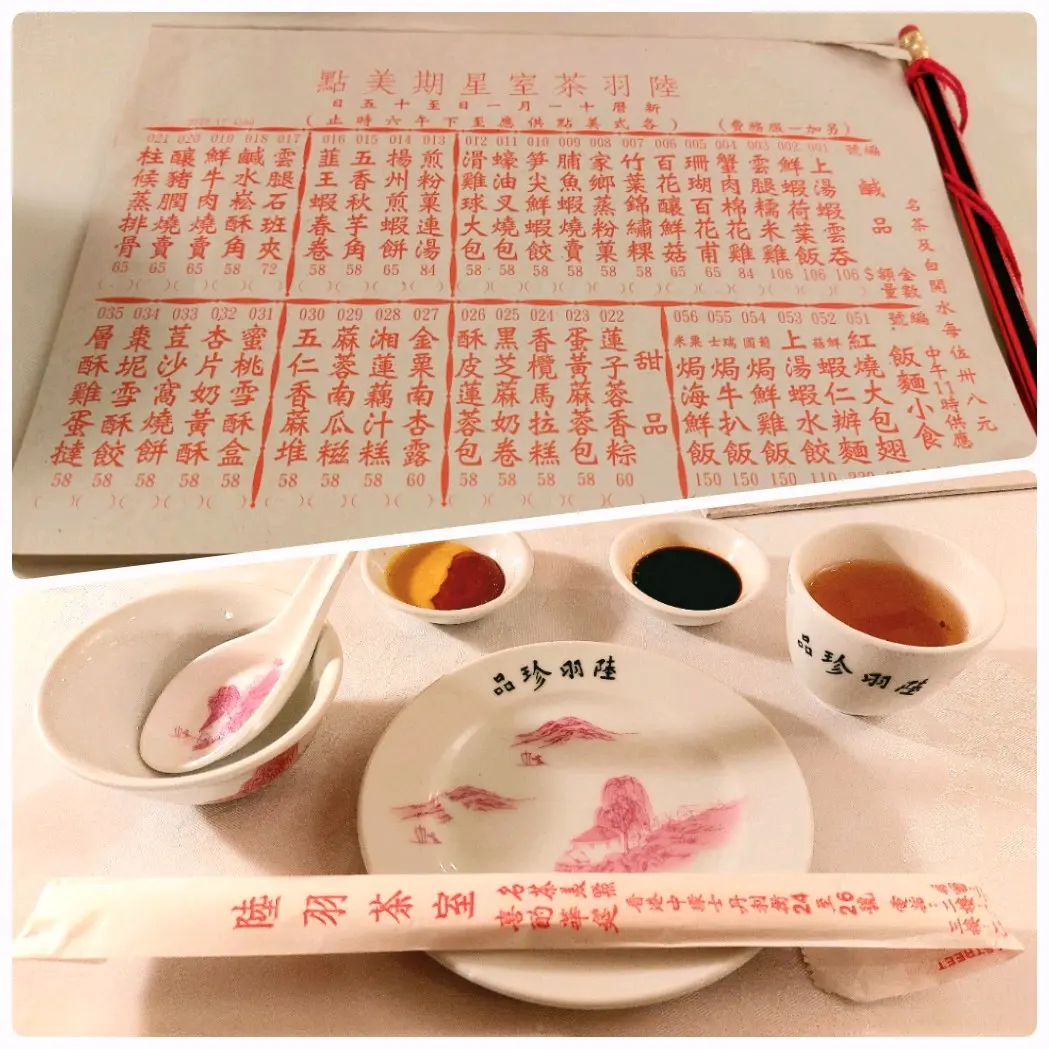 陸羽茶室星期美點
新曆十一月一日至十五日
(各式美點供應至下午六時止)
(另加一服務費)
名茶及白開水每位卅八元
編號
鹹品
金額
數量
$
001 上湯蝦雲吞 106
002 鮮蝦荷葉飯 106
003 雲腿糯米雞 106
004 蟹肉棉花雞 84
005 珊瑚百花甫 65
006 百花釀鮮菇 65
007 竹葉錦繡粿 58
008 家鄉蒸粉菓 58
009 脯魚蝦燒賣 58
010 笋尖鮮蝦餃 58
011 蠔油叉燒包 58
012 滑雞球大包 58
013 煎粉菓連湯 84
014 揚州煎蝦餅 65
015 五香秋芋角 58
016 韮王蝦春卷 58
017 雲腿石班夾 72
018 鹹水崧酥角 58
019 鮮牛肉燒賣 65
020 釀豬膶燒賣 65
021 柱候蒸排骨 65
編號
飯麵小食
中午11時供應
051 紅燒大包翅
052 鮮菇蝦仁辦麵
053 上湯蝦水餃 110
054 葡國焗鮮雞飯 150
055 瑞士焗牛扒飯 150
056 粟米焗海鮮飯 150
甜品
022 蓮子蓉香粽 60
023 蛋黃蔴蓉包 58
024 香欖馬拉糕 58
025 黑芝蔴奶卷 58
026 酥皮蓮蓉包 58
027 金粟南杏露 60
028 湘蓮藕汁糕 58
029 蔴蓉南瓜糍 58
030 五仁香蔴堆 58
031 蜜桃雪酥盒 58
032 杏片奶黃酥 58
033 荳沙窩燒餅 58
034 棗坭雪酥餃 58
035 層酥雞蛋撻 58
陸羽珍品
陸羽珍品
陸羽茶室
名茶美點
喜酌華筵
香港中環士丹利街24至26號
電話
STREET